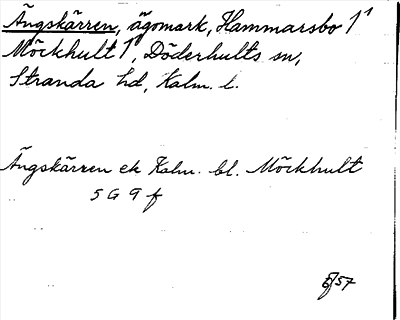 Ängskärren, ägomark, Hammarsbo 1¹
Möckhult 1¹, Döderhults sn,
Stranda hd, Kalm. l.
Ängskärren ek Kalm. bl. Möckhult
5 G 9 f
57